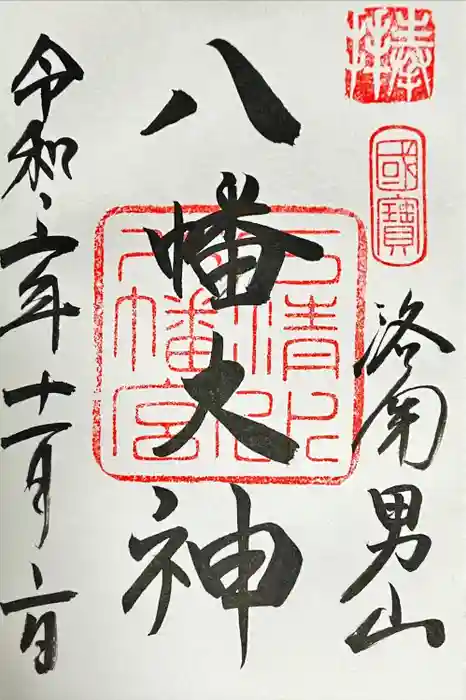 奉拝
國寶
洛南男山
八幡大神
石清水
八幡宮
令和 年十一月 日